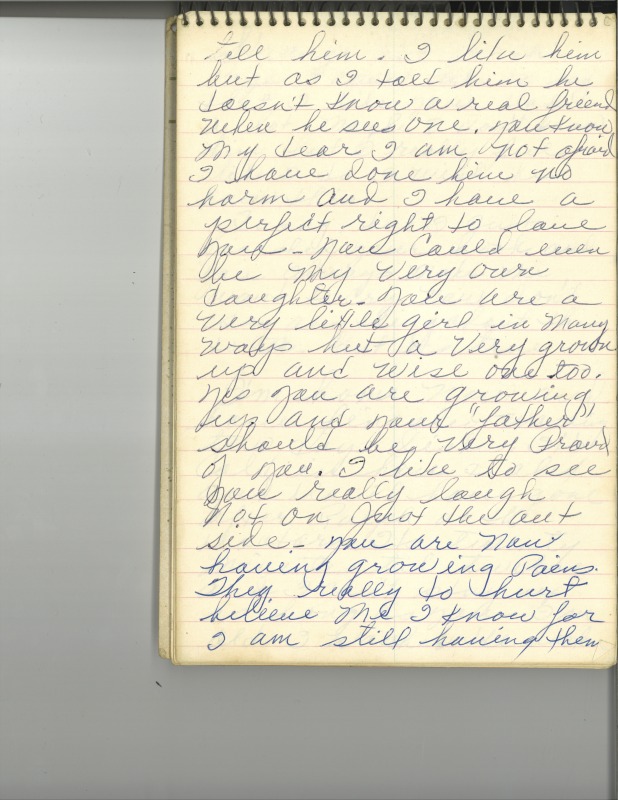 tell him. I like him
but as I told him he
doesn't know a real friend
when he sees one. You know
my dear I am not afraid
I have done him no
harm and I have a
perfect right to love
you - you could even
be my very own
daughter - you are a
very little girl in many
ways but a very grown
up and wise one too.
Yes you are growing
up and your "father"
should be very proud
of you. I like to see
you really laugh
not on just the out
side - you are now
having growing pains.
They really do hurt
believe me I know for
I am still having them